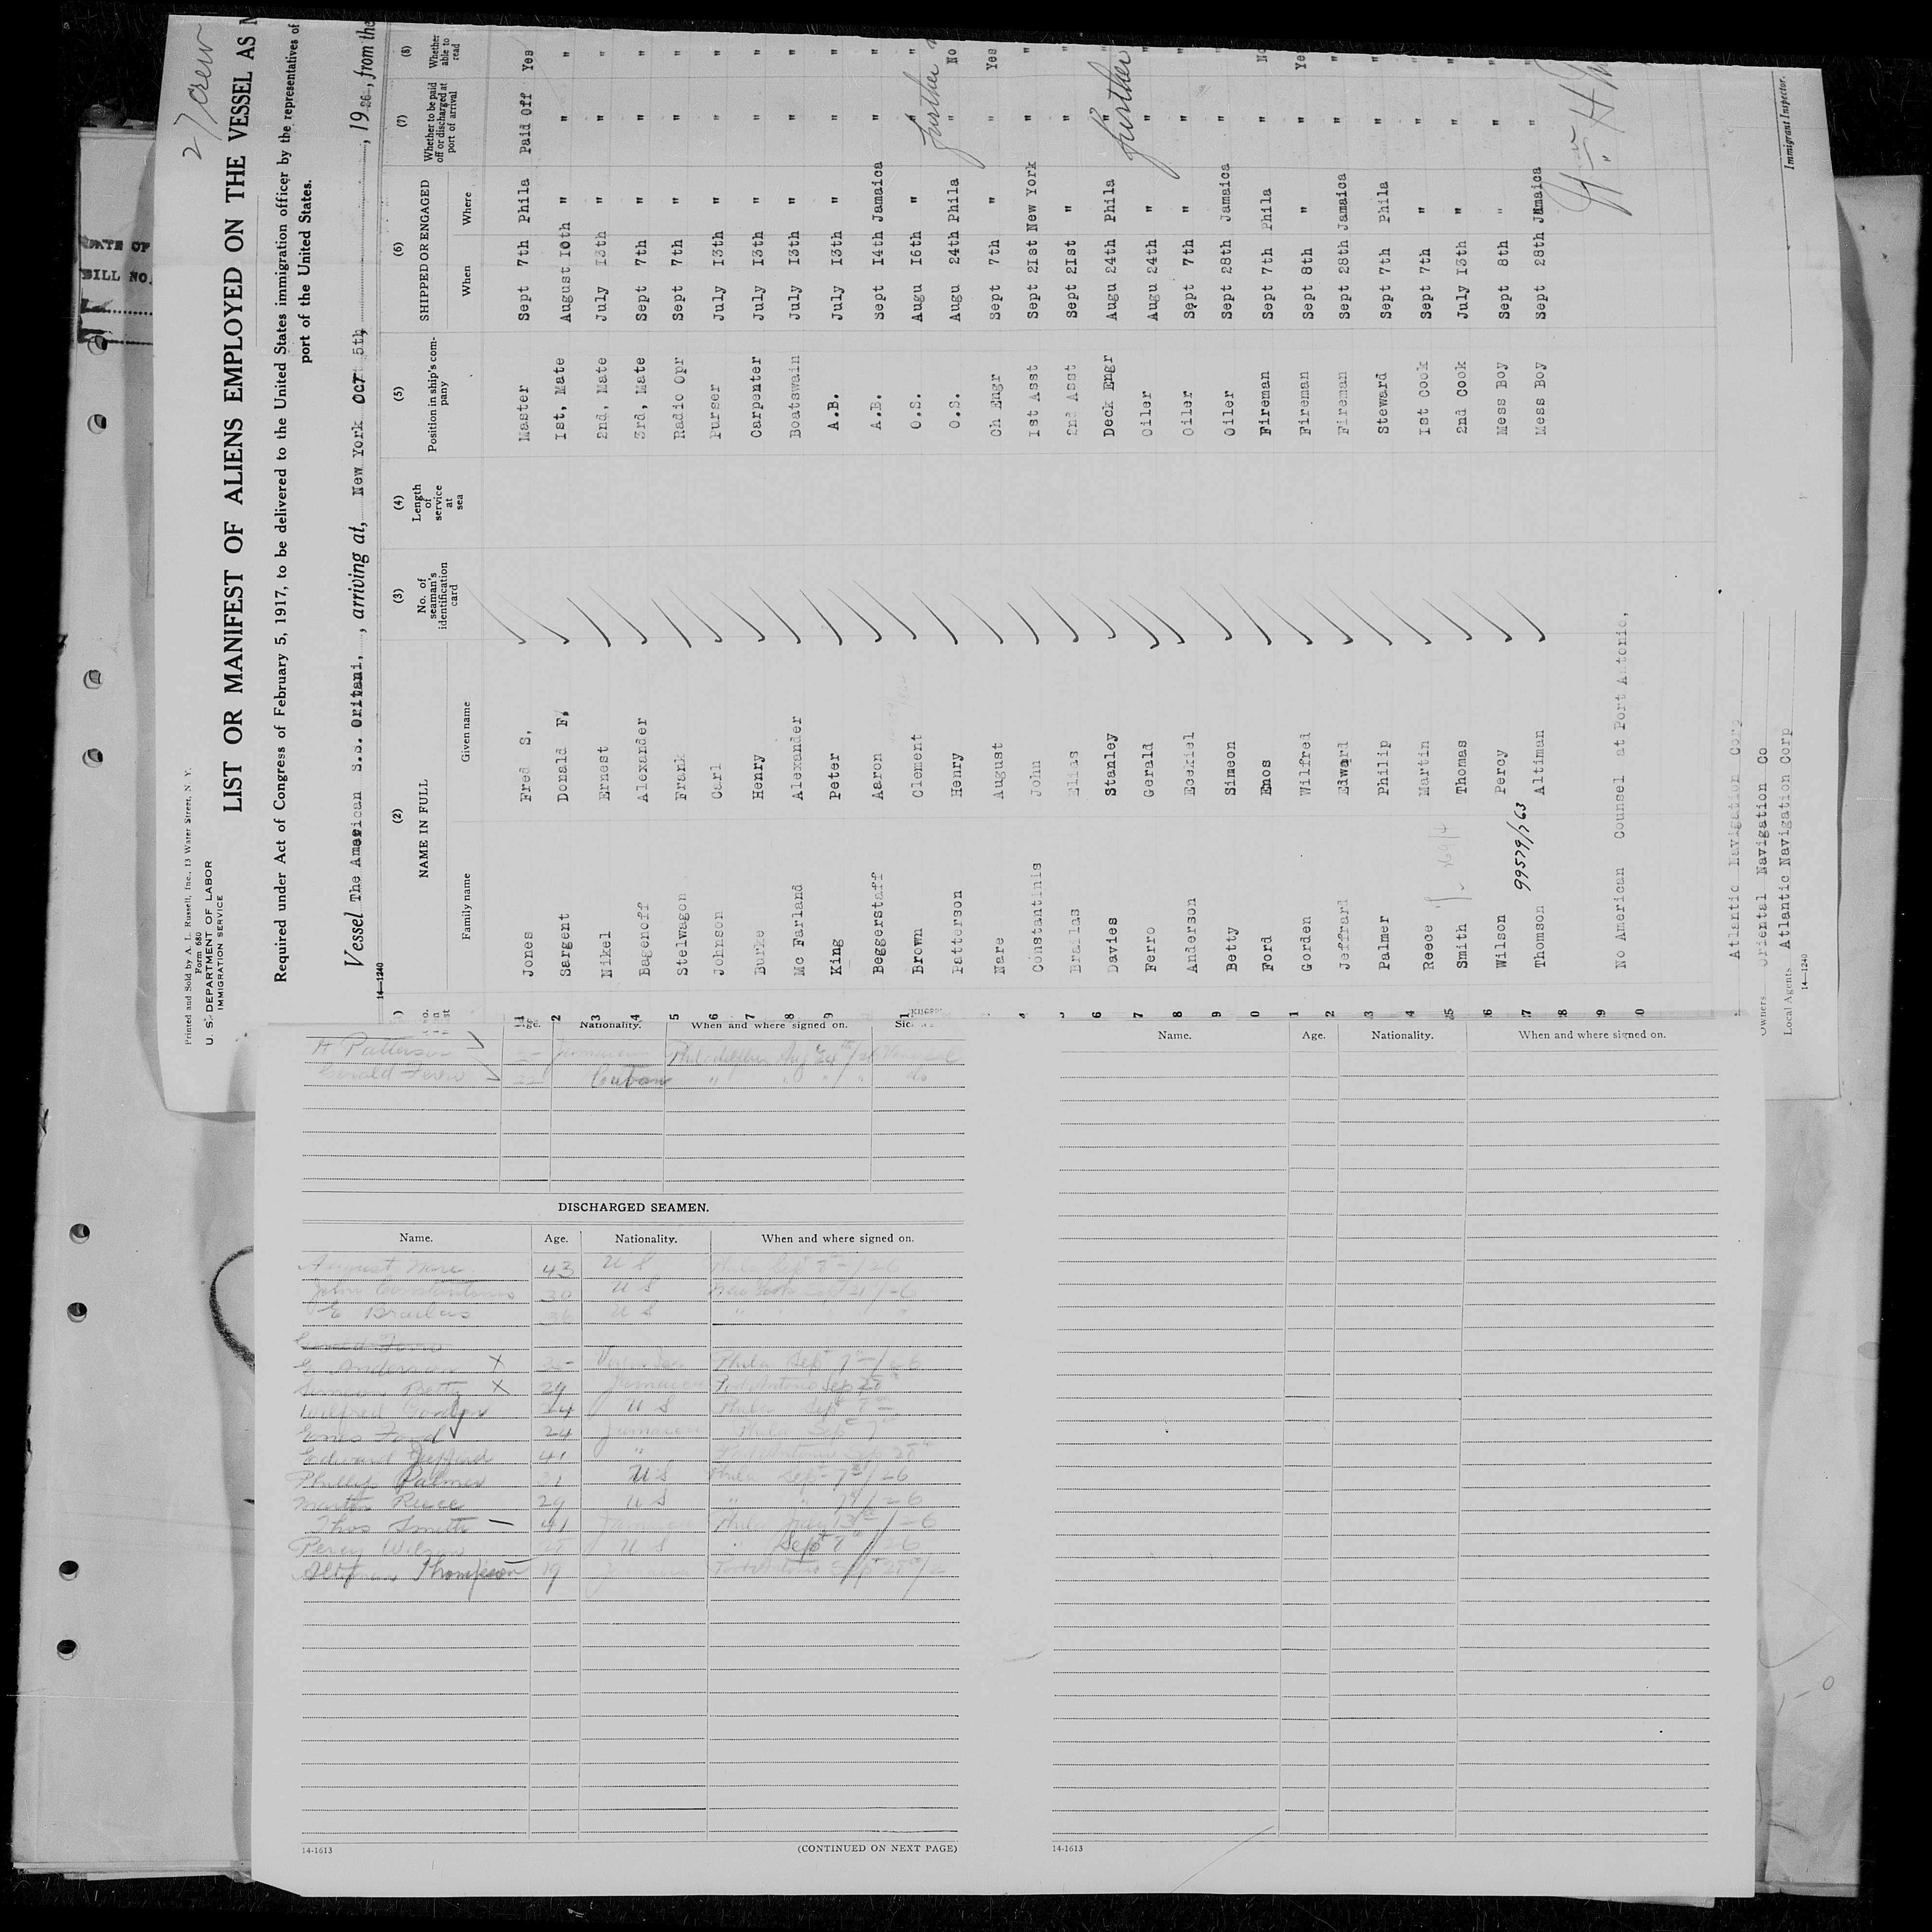 27 crew
Printed and Sold by A. L. Russell, Inc., 13 Water Street, N. Y.
Form 680
U. S. DEPARTMENT OF LABOR
IMMIGRATION SERVICE
LIST OR MANIFEST OF ALIENS EMPLOYED ON THE VESSEL AS
Required under Act of Congress of February 5, 1917, to be delivered to the United States immigration officer by the representatives of
port of the United States.
Vessel The American S.S. Oritani, , arriving at, New York Oct 5th, , 1926, from the
14—1240
(2) (3) (4) (5) (6) (7) (8)
NAME IN FULL No. of seaman's identification card Length of service at sea Position in ship's company SHIPPED OR ENGAGED Whether to be paid off or discharged at port of arrival Whether able to read
Family name Given name When Where
1 Jones Fred S. Master Sept 7th Phila Paid Off Yes
2 Sargent Donald F. Ist, Mate August I0th " " "
3 Nikel Ernest 2nd, Mate July I3th " " "
4 Bagenoff Alexander 3rd, Mate Sept 7th " " "
5 Stelwagon Frank Radio Opr Sept 7th " " "
6 Johnson Carl Purser July I3th " " "
7 Burke Henry Carpenter July I3th " " "
8 Mc Farland Alexander Boatswain July I3th " " "
9 King Peter A.B. July I3th " " "
Beggerstaff Aaron A.B. Sept I4th Jamaica " "
1 Brown Clement O.S. Augu I6th " " "
Patterson Henry O.S. Augu 24th Phila " No
further
Nare August Ch Engr Sept 7th " " Yes
4 Constantinis John Ist Asst Sept 2Ist New York " "
5 Brailas Elias 2nd Asst Sept 2Ist " " "
6 Davies Stanley Deck Engr Augu 24th Phila " "
7 Ferro Gerald Oiler Augu 24th " " "
further
8 Anderson Ecekiel Oiler Sept 7th " " "
9 Betty Simeon Oiler Sept 28th Jamaica " "
0 Ford Enos Fireman Sept 7th Phila " No
1 Gorden Wilfred Fireman Sept 8th " " Yes
2 Jeffrard Edward Fireman Sept 28th Jamaica " "
3 Palmer Philip Steward Sept 7th Phila " "
4 Reece Martin Ist Cook Sept 7th " " "
5 Smith Thomas 2nd Cook July I3th " " "
6 Wilson Percy Mess Boy Sept 8th " " "
99579/763
7 Thomson Altiman Mess Boy Sept 28th Jamaica " "
8
9
0
No American Counsel at Port Antonio,
Atlantic Navigation Corp
Owners Oriental Navigation Co
Local Agents Atlantic Navigation Corp
14—1240
Immigrant Inspector.
DATE OF
BILL NO.
Age. Nationality. When and where signed on.
H Patterson Jamaican Philadelphia Aug 24th/26
Gerald Ferro 22 Cuban " " " " do
DISCHARGED SEAMEN.
Name. Age. Nationality. When and where signed on.
August Nare 43 U S Phila Sept 7th/26
John Constantinis 30 U S New York Sept 21/26
E Brailas 36 U S "
Gerald Ferro
E Anderson X Phila Sept 7th/26
Simeon Betty X 29 Jamaica Port Antonio Sep 28th
Wilfred Gordon 24 U S Phila Sept 8th
Enos Ford 24 Jamaica Phila Sep 7th
Edward Jefferd 41 " Port Antonio Sep 28th
Phillip Palmer 31 U S Phila Sept 7th/26
Martin Reece 29 U S " " 7th/26
Thos Smith 41 Jamaica Phila July 13th/26
Percy Wilson U S " Sept 7th/26
Altiman Thompson 19 Jamaica Port Antonio Sep 28th/2
14-1613
(CONTINUED ON NEXT PAGE)
Name. Age. Nationality. When and where signed on.
14-1613